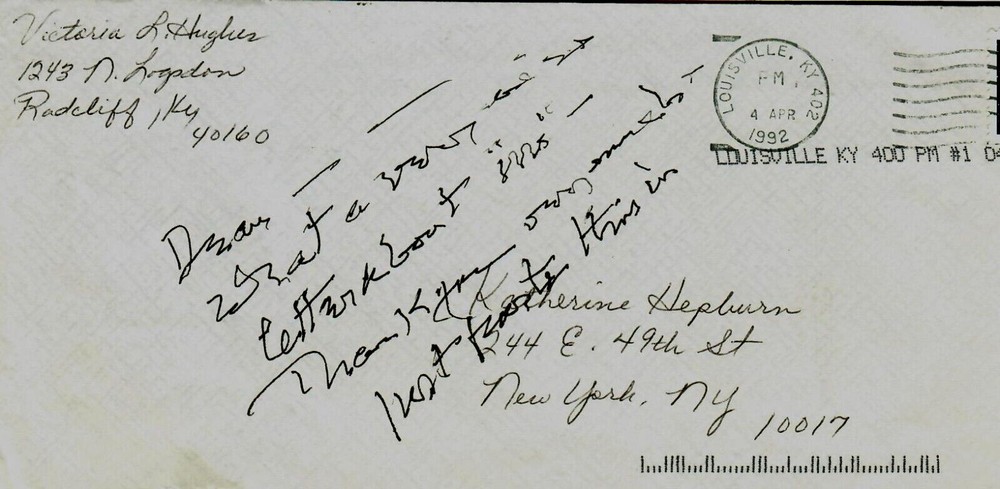 Victoria L. Hughes
1243 N. Logsdon
Radcliff, Ky
40160
LOUISVILLE, KY 402
PM
4 APR
1992
LOUISVILLE KY 400 PM #1 04
Dear —
What a
letter about
Thank you —
Just paste this in
Katherine Hepburn
244 E. 49th St
New York, NY
10017